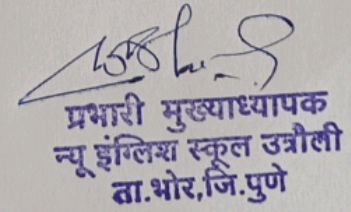 प्रभारी मुख्याध्यापक
न्यू इंग्लिश स्कूल उत्रौली
ता.भोर,जि.पुणे